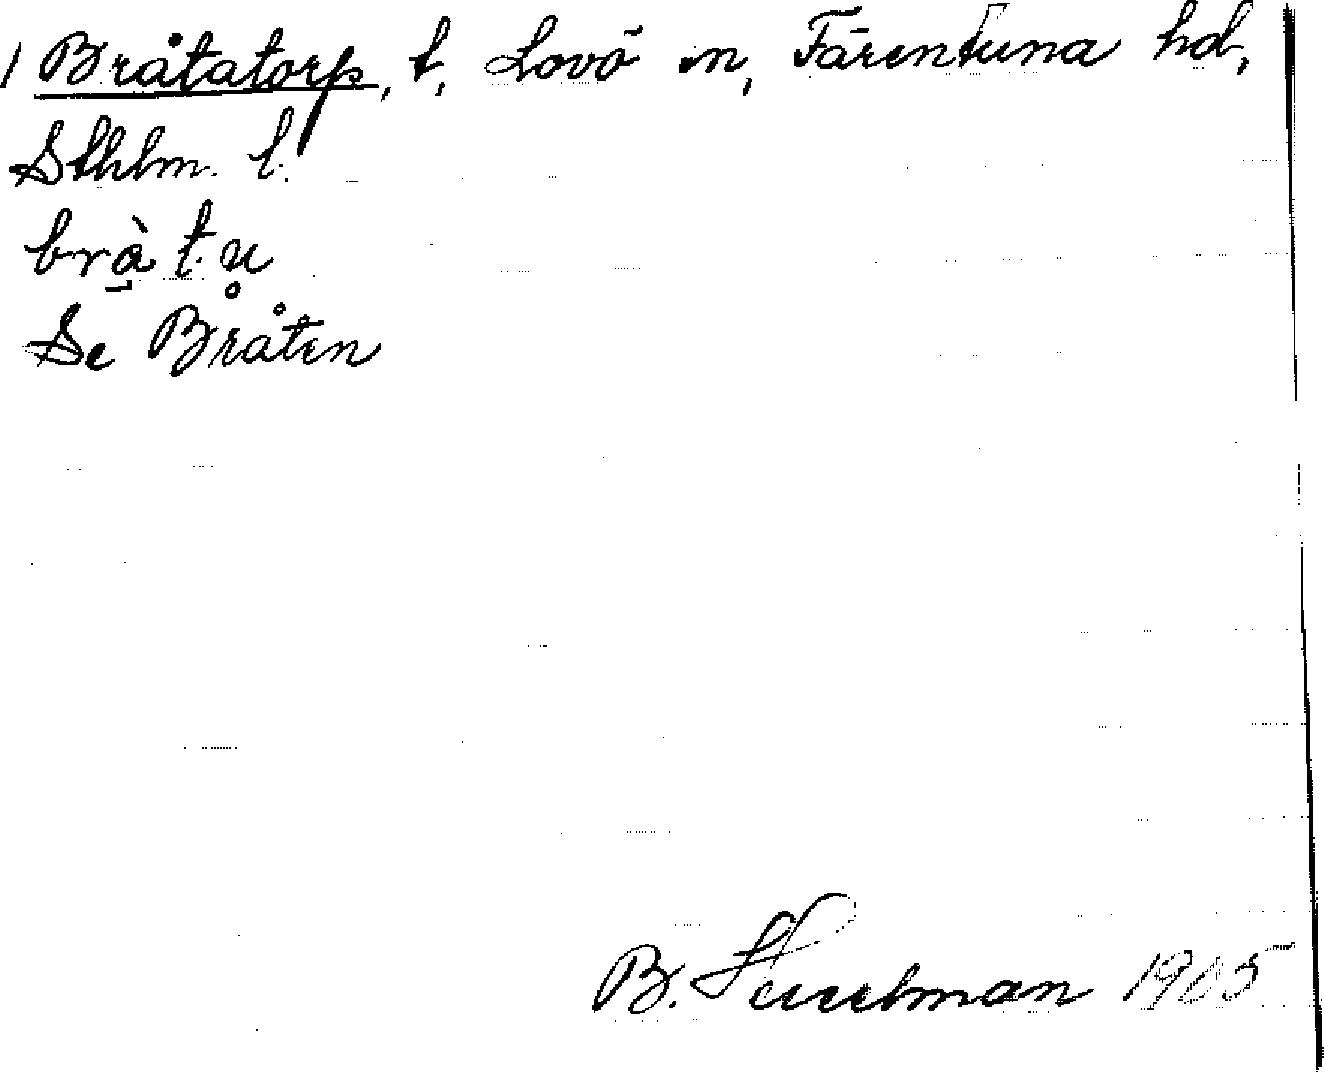 1 Bråtatorp, t, Lovö sn, Färentuna hd,
Sthlm. l.
bràt.n̥
Se Bråten
B. 1905